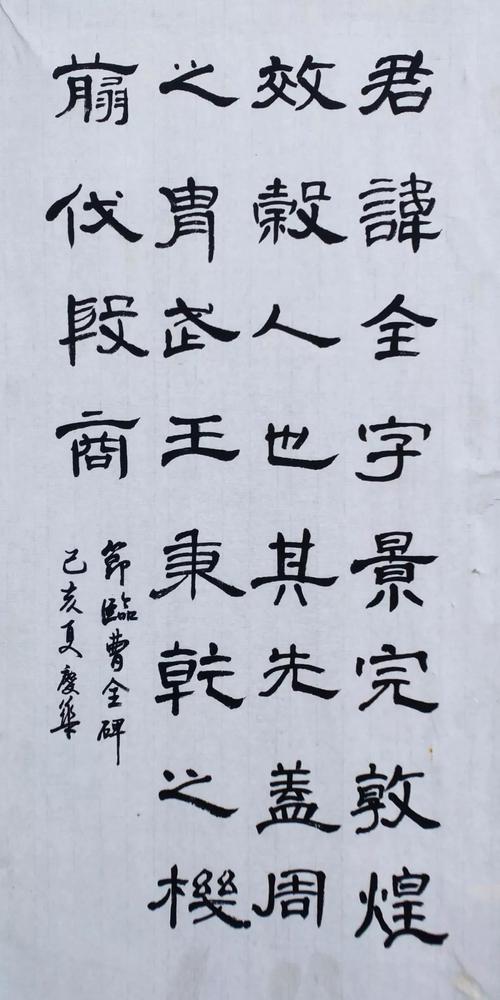 君諱全字景完敦煌
效穀人也其先蓋周
之胄武王秉乾之機
翦伐殷商
節臨曹全碑
己亥夏慶華